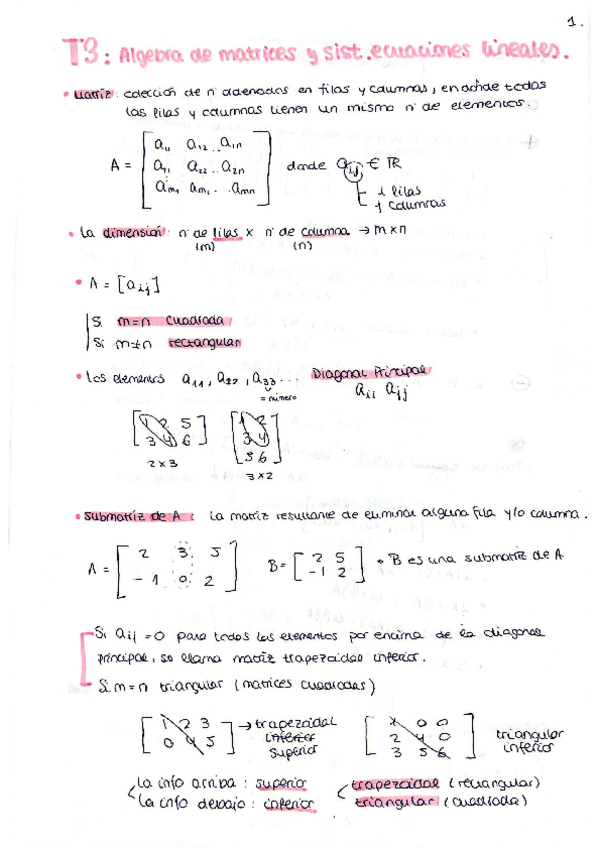 1.
T3: Algebra de matrices y sist. ecuaciones lineales.
• Matriz: colección de nº ordenados en filas y columnas, en donde todas
las filas y columnas tienen un mismo nº de elementos.
A = [ a11 a12 .. a1n
a11 a22 .. a2n
am1 am1 . . amn ] donde aij ∈ ℝ
i filas
j columnas
• La dimensión: nº de filas × nº de columna → m×n
(m) (n)
• A = [aij]
Si m=n cuadrada
Si m≠n rectangular
• Los elementos a11, a22, a33 ... Diagonal Principal
= número aii ajj
[ 1 2 5
3 4 6 ] [ 1 2
3 4
5 6 ]
2×3 3×2
• Submatriz de A: La matriz resultante de eliminar alguna fila y/o columna.
A = [ 2 3 5
-1 0 2 ] B = [ 2 5
-1 2 ] • B es una submatriz de A
Si aij = 0 para todos los elementos por encima de la diagonal
principal, se llama matriz trapezoidal inferior.
Si m=n triangular (matrices cuadradas)
[ 1 2 3
0 4 5 ] → trapezoidal
inferior
superior
[ 1 0 0
2 4 0
3 5 6 ] triangular
inferior
La info arriba: superior
La info debajo: inferior
trapezoidal (rectangular)
triangular (cuadrada)